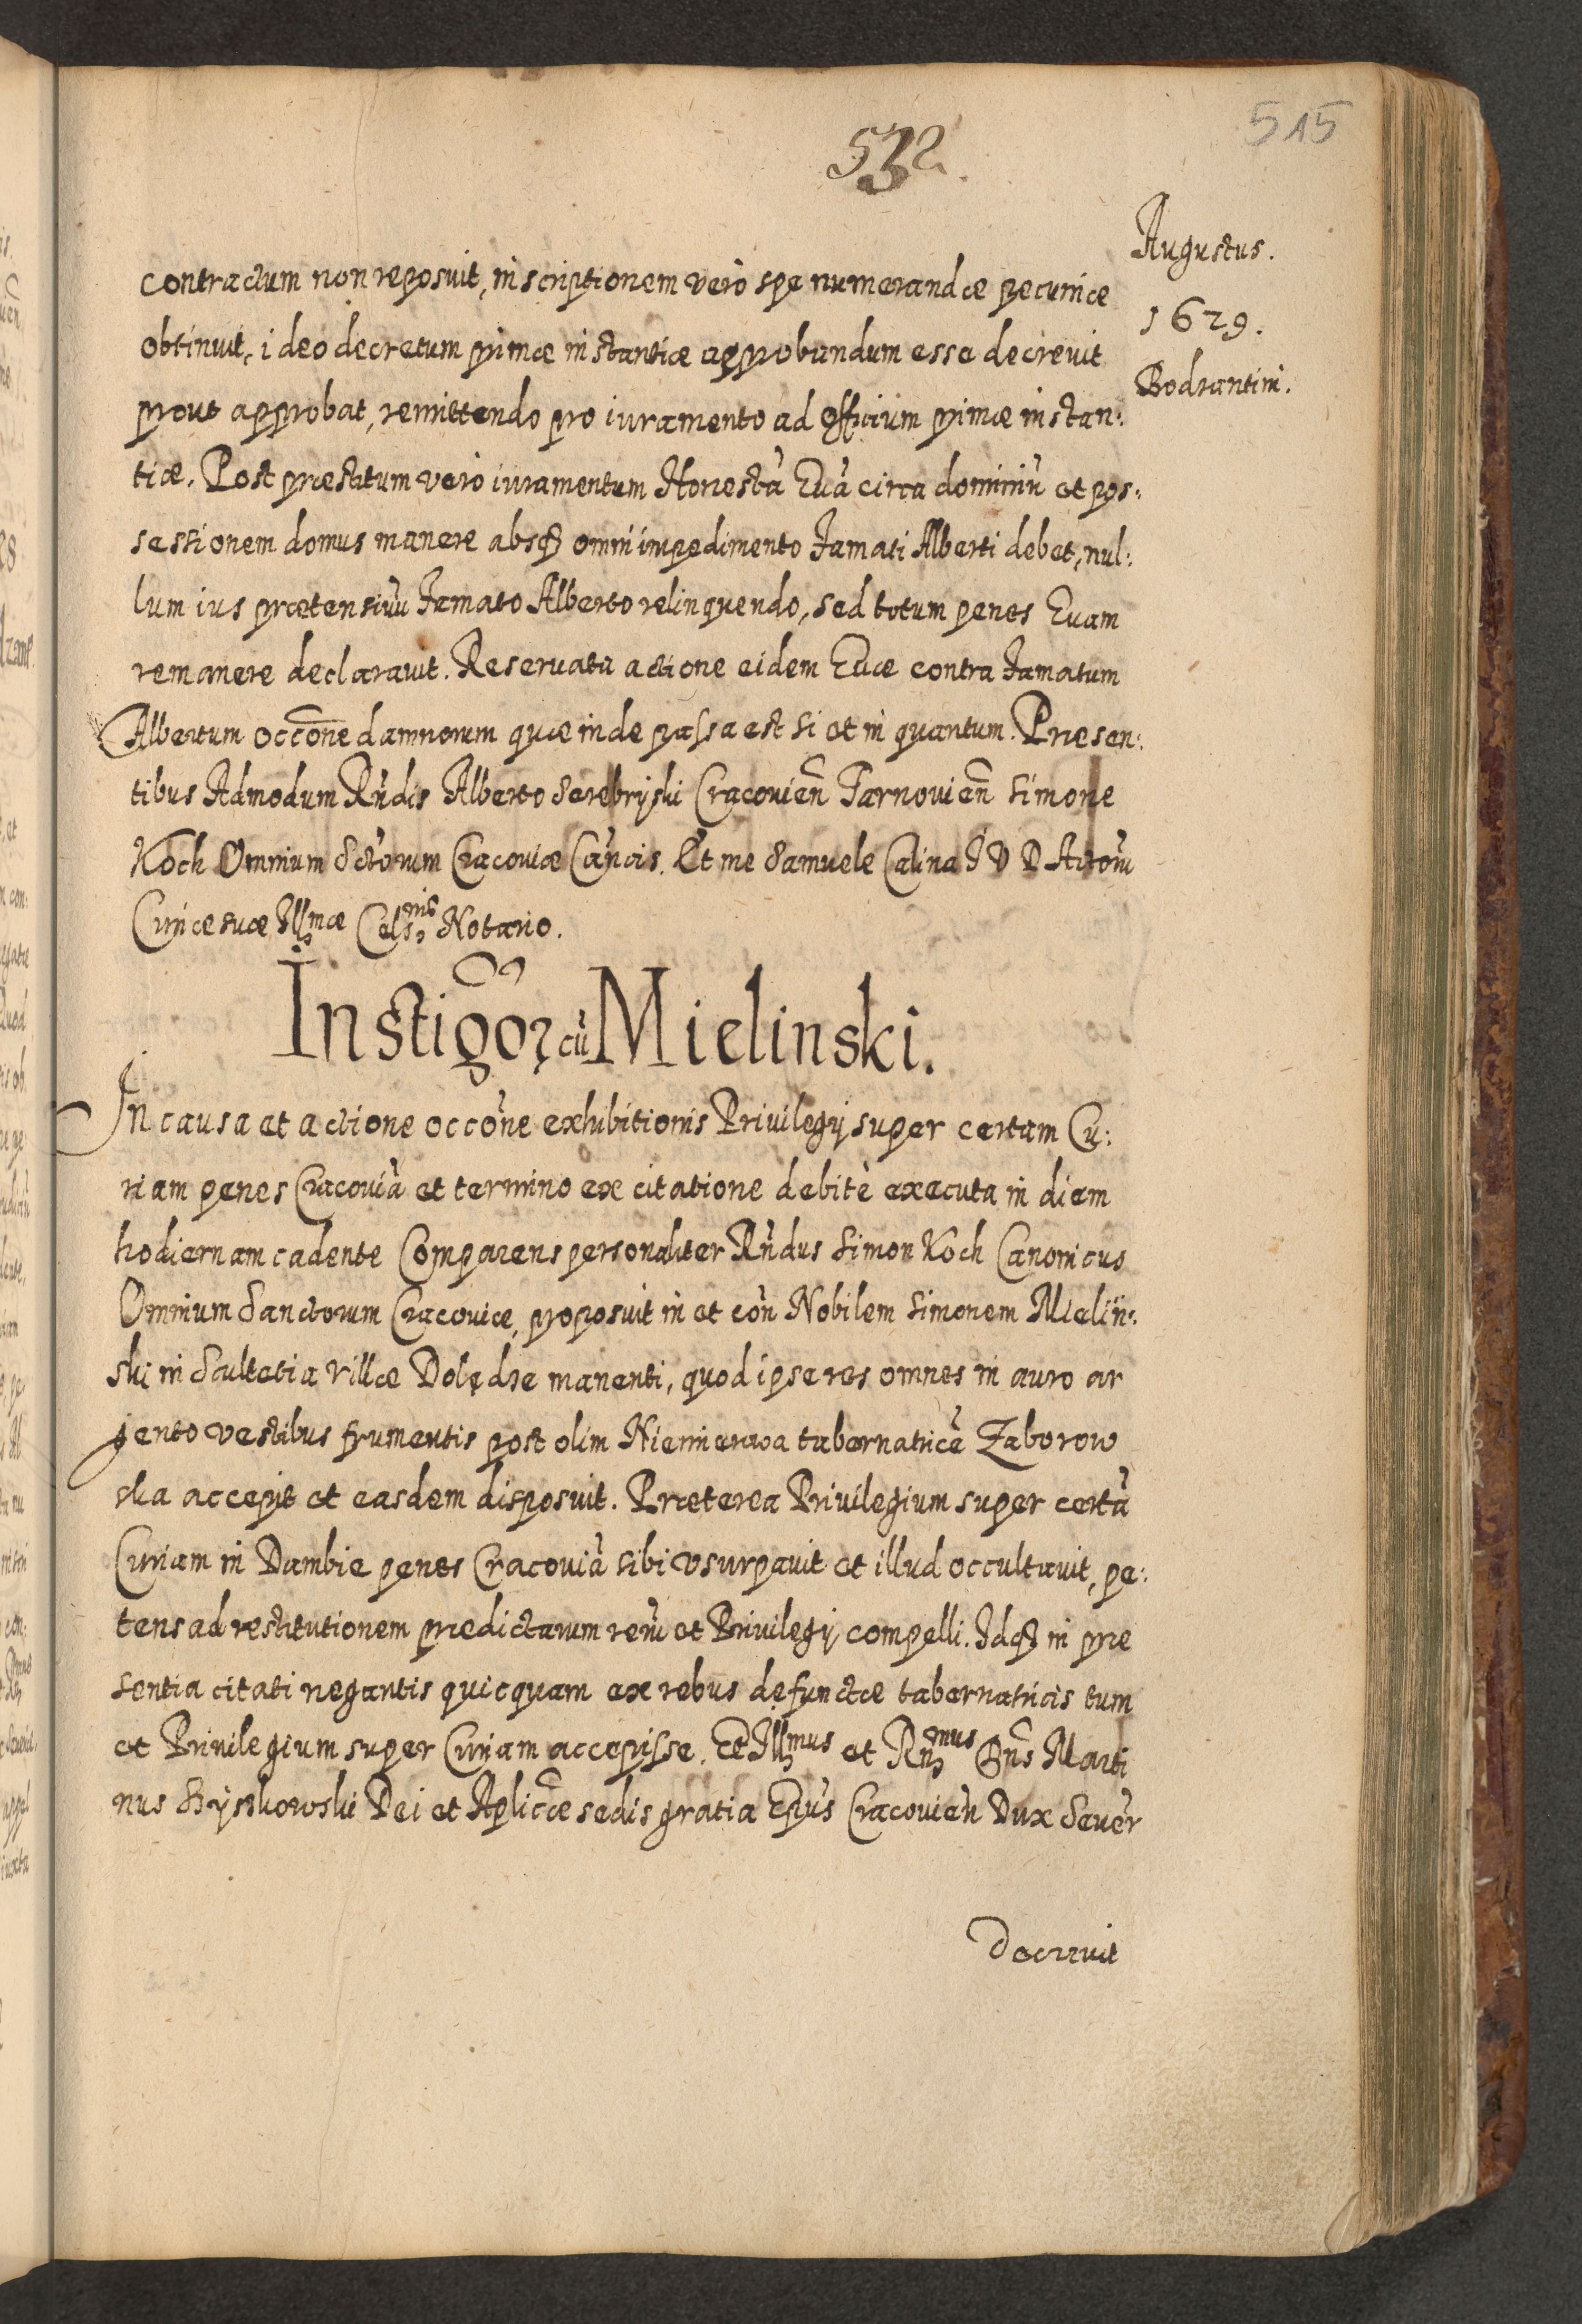 515
532.
Augustus.
1629.
Bodzantini.
contractum non reposuit, inscriptionem verò spe numerandæ pecuniæ
obtinuit, ideò decretum primæ instantiæ approbandum esse decrevit
prout approbat, remittendo pro iuramento ad officium primæ instan:
tiæ. Post præstitum verò iuramentum Honestà Evà circa dominiũ et pos:
sessionem domus manere absq₃ omni impedimento Famati Alberti debet, nul:
lum ius prætensivũ Famato Alberto relinquendo, sed totum penes Evam
remanere declaravit. Reservata actione eidem Evæ contra Famatum
Albertum occõne damnorum quæ inde passa est si et in quantum. Præsen:
tibus Admodum Rñdis Alberto Serebryski Cracovieñ Tarnovieñ Simone
Koch Omnium Sctorum Cracoviæ Cañcis. Et me Samuele Calina I V D Actorũ
Curiæ suæ Illmæ Celsnis Notario.
Instigor cũ Mielinski.
In causa et actione occõne exhibitionis Privilegij super certam Cu:
riam penes Cracoviã et termino ex citatione debitè executa in diem
hodiernam cadente Comparens personaliter Rñdus Simon Koch Canonicus
Omnium Sanctorum Cracoviæ, proposuit in et coñ Nobilem Simonem Mielin:
ski in Scultetia villæ Dolędze manenti, quod ipse res omnes in auro ar
gento vestibus frumentis post olim Niemierzwa tabernatricẽ Zaborow
ska accepit et easdem disposuit. Præterea Privilegium super certã
Curiam in Dambie penes Cracoviã sibi vsurpavit et illud occultavit, pe:
tens ad restitutionem prædictarum rerũ et Privilegij compelli. Idq₃ in præ
sentia citati negantis quicquam ex rebus defunctæ tabernatricis tum
et Privilegium super Curiam accepisse. Et Illmus et Rñmus Dñs Marti
nus Szyszkowski Dei et Aplicæ sedis gratia Epũs Cracovieñ Dux Sever
Decrevit